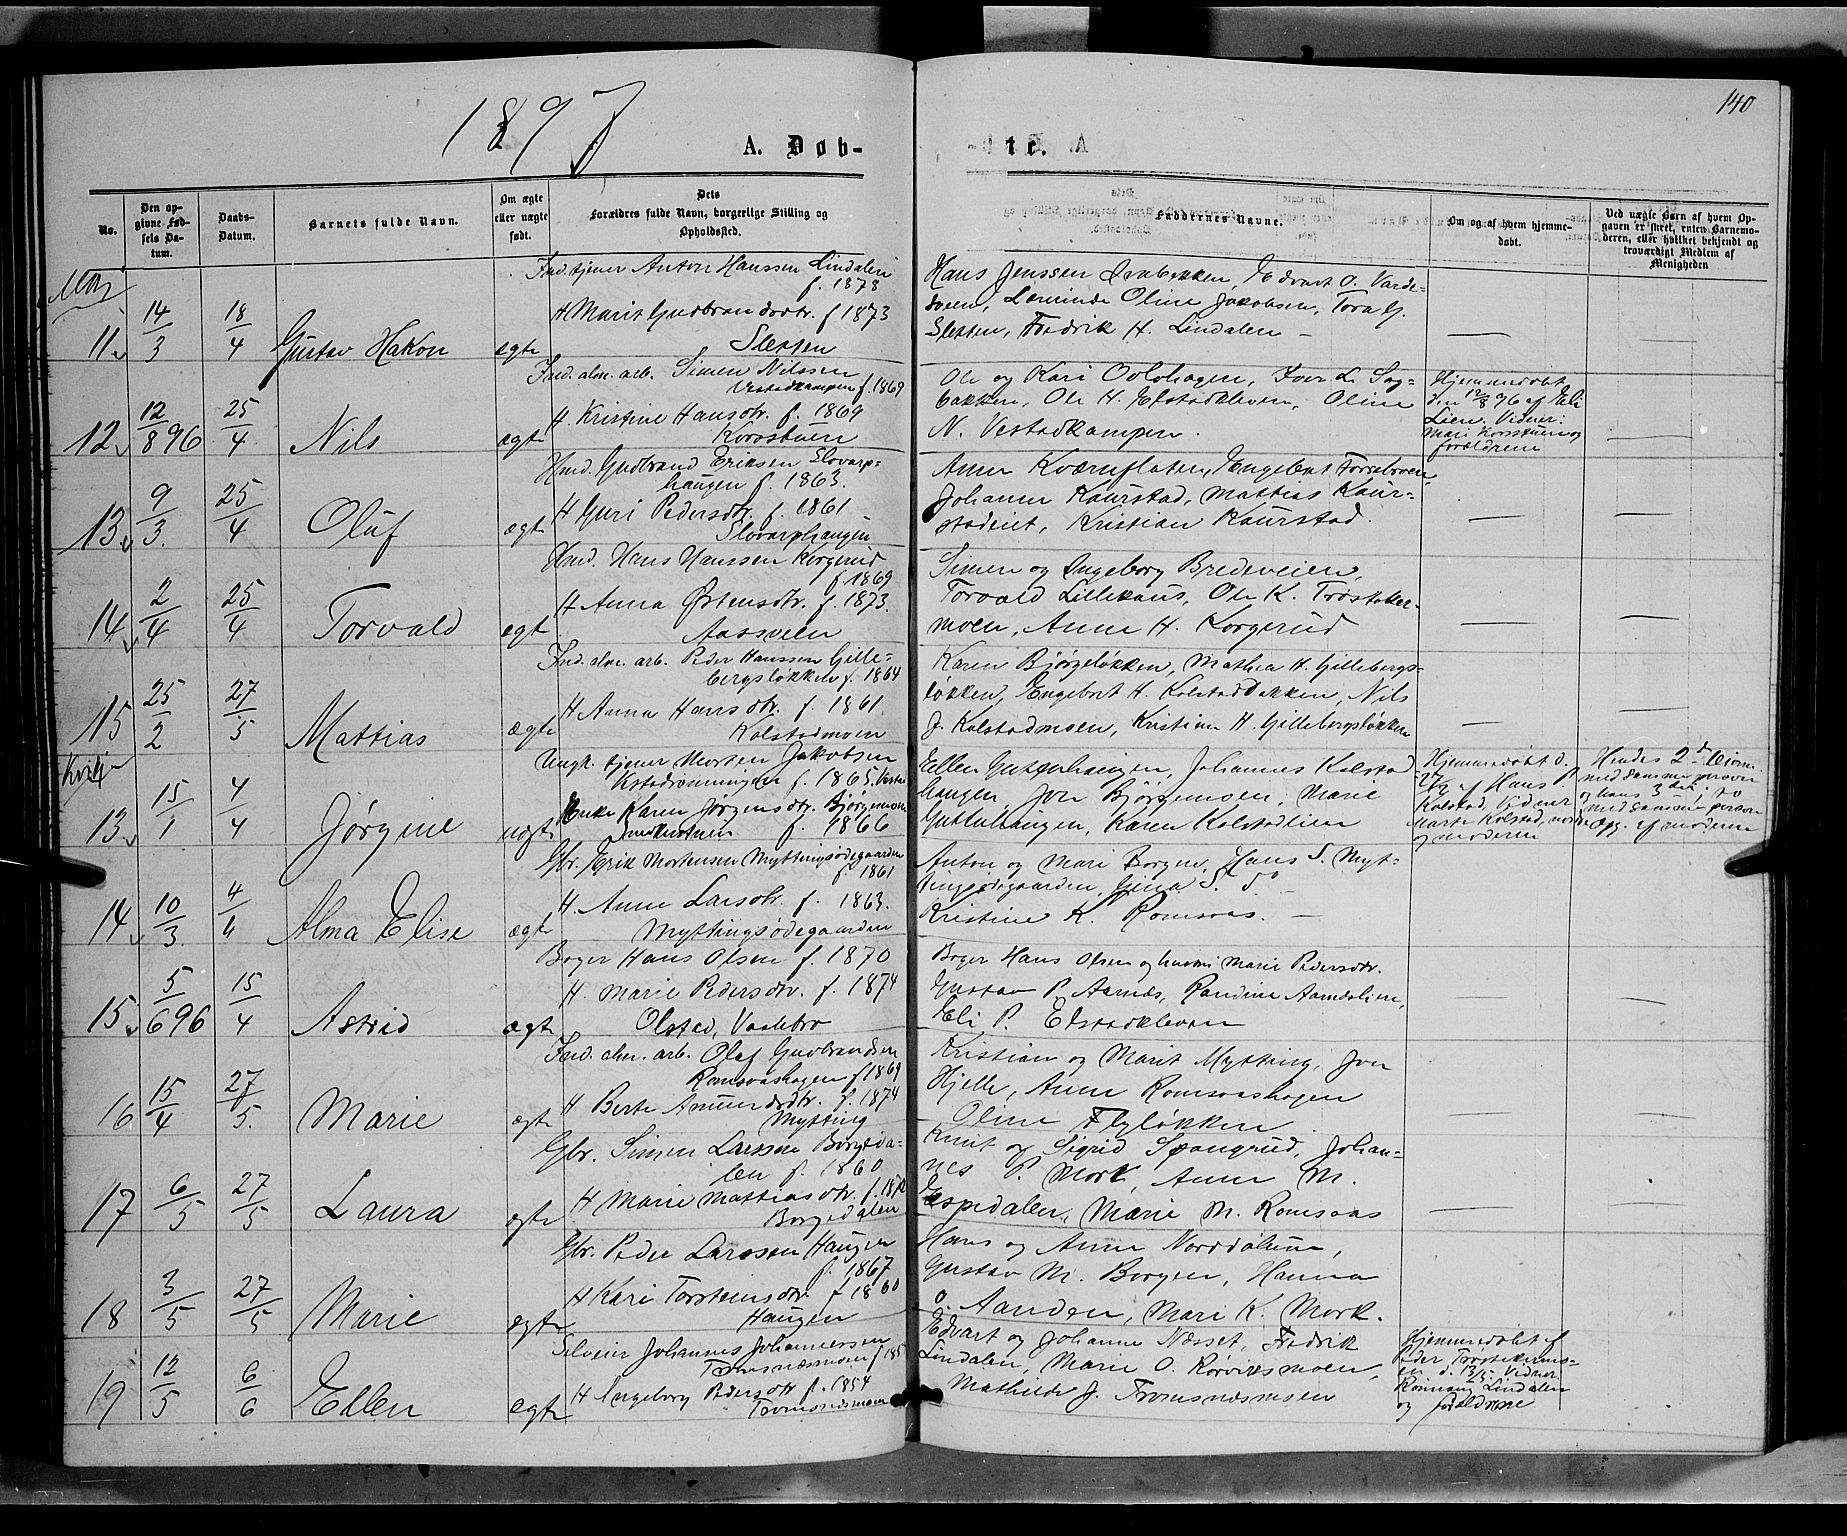 1897
140
A. Døb-
te. A
No.
Den op-
givne Fød-
sels Da-
tum.
Daabs-
Datum.
Barnets fulde Navn.
Om ægte
eller uægte
født.
Dets
Forældres fulde Navn, borgerlige Stilling og
Opholdssted.
Faddernes Navne.
Om og af hvem hjemme-
døbt.
Ved uægte Barn af hvem Op-
gaven er skeet, enten Barnemo-
deren, eller hvilket bekjendt og
troværdigt Medlem af
Menigheden
11 14/3 18/4 Gustav Hakon egte
Ind. tjener Anton Hanssen Lindalen
f. 1873
H Marit Gudbrandsdtr. f 1873
Sletten
Hans Jenssen Ivabekken, Edvart O. Varde-
Oline Jakobsen, Tora G.
Sletten, Fredrik H. Lindalen –
—
12 12/8 96 25/4 Nils egte
Ind. alm. arb. Simen Nilssen
Vestadkampen f. 1869
H. Kristine Hansdtr. f. 1869
Korsstuen
Ole og Kari Odlohagen, Iver L. Sag-
bakken, Ole H. Elstadkleven, Oline
N. Vestadkampen.
Hjemmedøbt
den 12/8 96 af Eli
Lien. Vidner:
Mari Korsstuen og
forældrene
—
13 9/3. 25/4 Oluf ægte
Hmd. Gudbrand Eriksen Slovarp-
haugen f. 1863.
H Guri Pedersdtr. f. 1861
Slovarphaugen
Anne Kværnflaten, Engebret
Johanne Kaurstad, Mattias Kaur-
stadeiet, Kristian Kaurstad.
— —
14 2/4 25/4 Torvald egte
Hmd. Hans Hanssen Korgerud
f. 1869
H Anna Østensdtr. f. 1873.
Aassveen
Simen og Ingeborg Bredeveien,
Torvald Lillehaus, Ole K. Trøstaker-
moen, Anne H. Korgerud
— —
15 25/2 27/5 Mattias ægte
Ind. alm. arb. Peder Hanssen Gille-
bergsløkken f. 1864
H Anna Hansdtr. f. 1861.
Kolstadmoen
Karen Bjørgeløkken, Mathea H. Gillebergs-
løkken, Engebret H. Kolstadbakken, Nils
J. Kolstadmoen, Kristian H. Gillebergsløkken
— —
Kvikne
13 15/1 4/4 Jørgine uegte
Ungk. tjener Morten Jakobsen
f. 1865.
Enke Karen Jørgensdtr. Bjørgemoen
f. 1866
Ellen Guttuhaugen, Johannes Kolstad
haugen, Jon Bjørgemoen, Marie
Guttuhaugen, Karen Kolstadlien
Hjemmedøbt d.
af Hans P.
Kolstad. Vidner
Marte Kolstad,
og moderen
Hendes 2det barn
med samme person
og hans 3die; do
med samme person
Opg. af moderen
14 10/3. 4/4 Alma Elise ægte
Gbr. Erik Mortensen Myttingsødegaarden
f. 1861
H. Anne Larsdtr. f. 1863.
Myttingsødegaarden
Anton og Mari Borgen, Hans S. Myt-
tingsødegaarden, Gina S. do –
Kristine K. Romsaas. —
15 5/6 96 15/4 Astrid ægte
Bager Hans Olsen f. 1870
H. Marie Pedersdtr. f. 1874
Olstad, Vaalebro
Bager Hans Olsen og hustru Marie Pedersdtr.
Gustav P. Aarnæs, Randine Aamdalien,
Eli P. Elstadkleven
— —
16 15/4 27/5. Marie ægte
Ind. alm. arb. Olaf Gudbrandsen
Romsaashagen f 1869
H Berte Amundsdtr. f. 1874
Mytting
Kristian og Marit Mytting, Jon
Hjelle, Anne Romsaashagen
Oline Flyløkken
— —
17 6/5 27/5 Laura egte
Gbr. Simen Larssen Borgeda-
len f. 1860
H Marie Mattiasdtr. f.
Borgedalen
Knut og Sigrid Spangrud, Johan-
nes P. Mork, Anne M.
Espedalen, Marie M. Romsaas
— —
18 3/5 27/5 Marie egte
Gbr. Peder Larssen Haugen
f. 1867
H Kari Torsteinsdtr. f 1860
Haugen
Hans og Anne Norddalum,
Gustav M. Borgen, Hanna
O. Aanden, Mari K. Mork.
19 12/5 6/6 Ellen egte
Selveier Johannes Johannessen
Tromsnæsmoen f 185
H Ingeborg Pedersdtr f. 1854
Tromsnæsmoen
Edvart og Johanne Næsset, Fredrik
Lindalen, Marie O. Rørviksmoen,
Mathilde J. Tromsnæsmoen
Hjemmedøbt af
Peder Trøstakermo-
en d. 13/5. Vidner
Rønnaug Lindalen
og forældrene